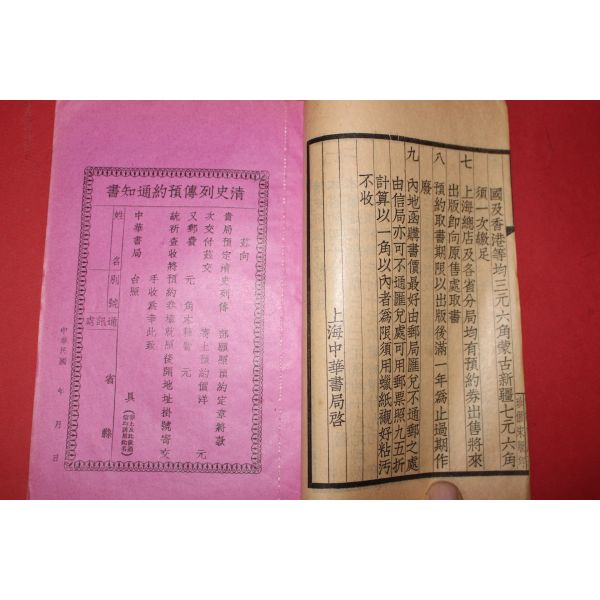 國及香港等均三元六角蒙古新疆七元六角
須一次繳足
七 上海總店及各省分局均有預約券出售將來
出版卽向原售處取書
八 預約取書期限以出版後滿一年爲止過期作
廢
九 內地函購書價最好由郵局匯兌不通郵之處
由信局亦可不通匯兌處可用郵票照九五折
計算以一角以內者爲限須用蠟紙襯好粘汚
不收
上海中華書局啓
清史列傳預約通知書
茲向
貴局預定清史列傳 部願照預約定章將款
次交付茲交 上預約價洋 元
又郵費 元 角
統祈查收將預約券填就照後開地址掛號寄交
手收爲幸此致
中華書局 台照
具
姓名
別號
通訊處
省 縣
中華民國 年 月 日